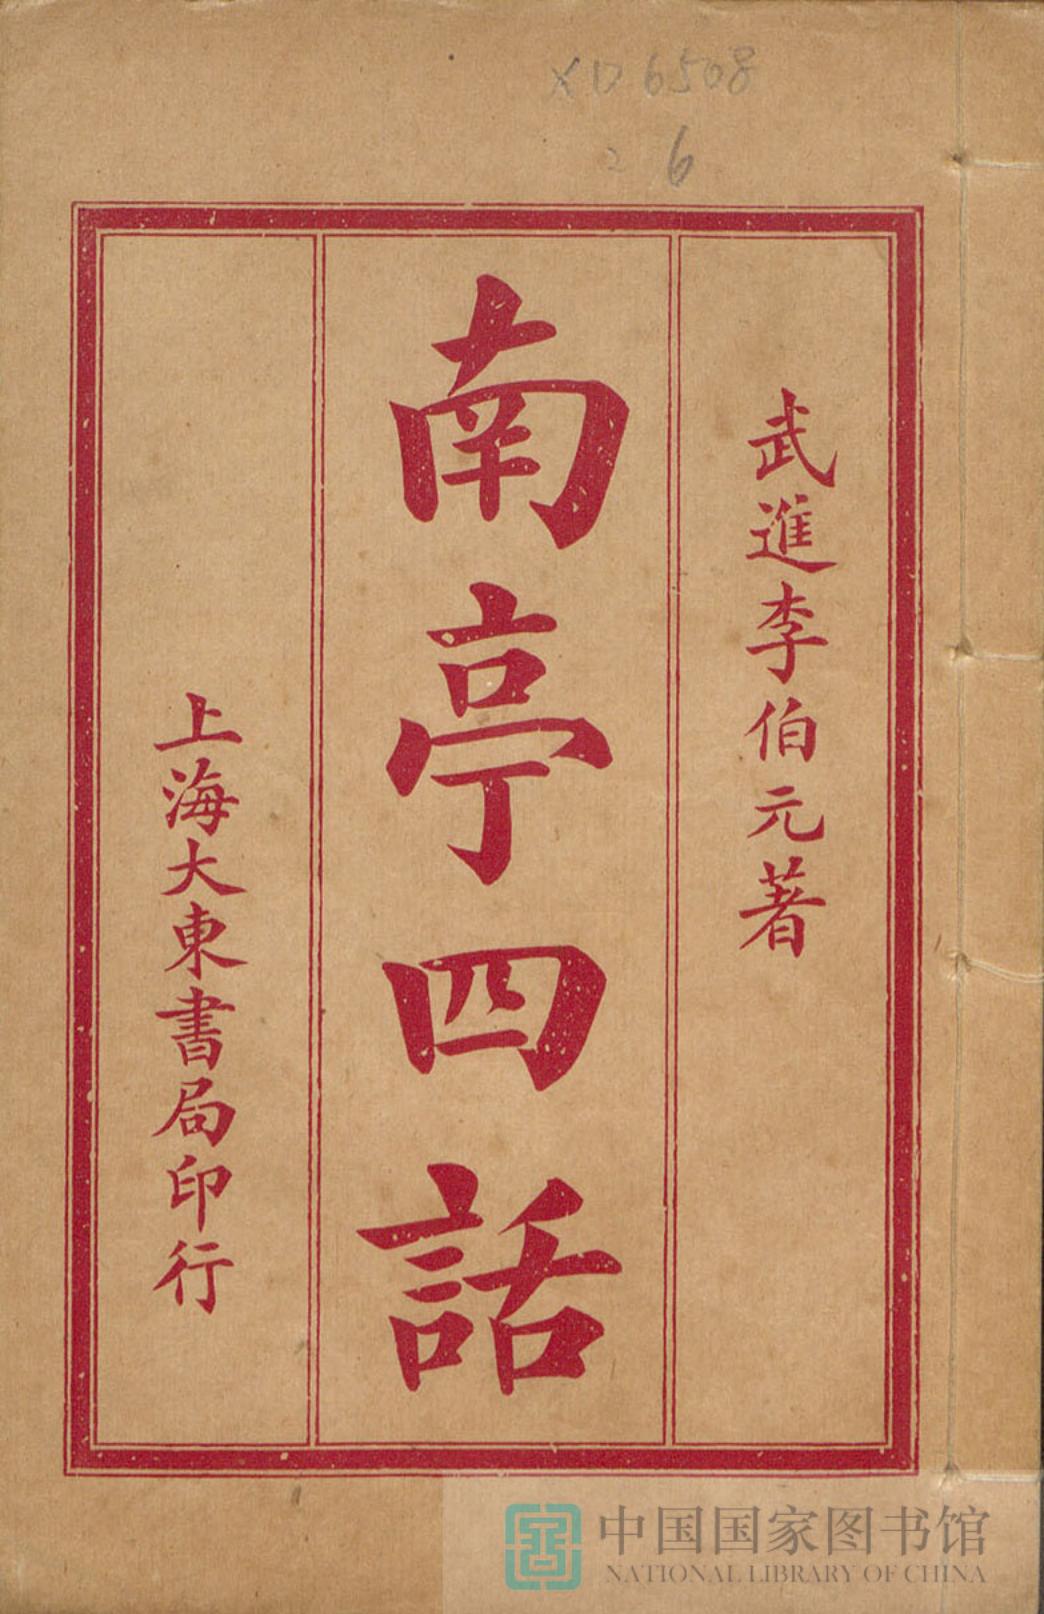 XD6508
2 6
武進李伯元著
南亭四話
上海大東書局印行
中国国家图书馆
NATIONAL LIBRARY OF CHINA